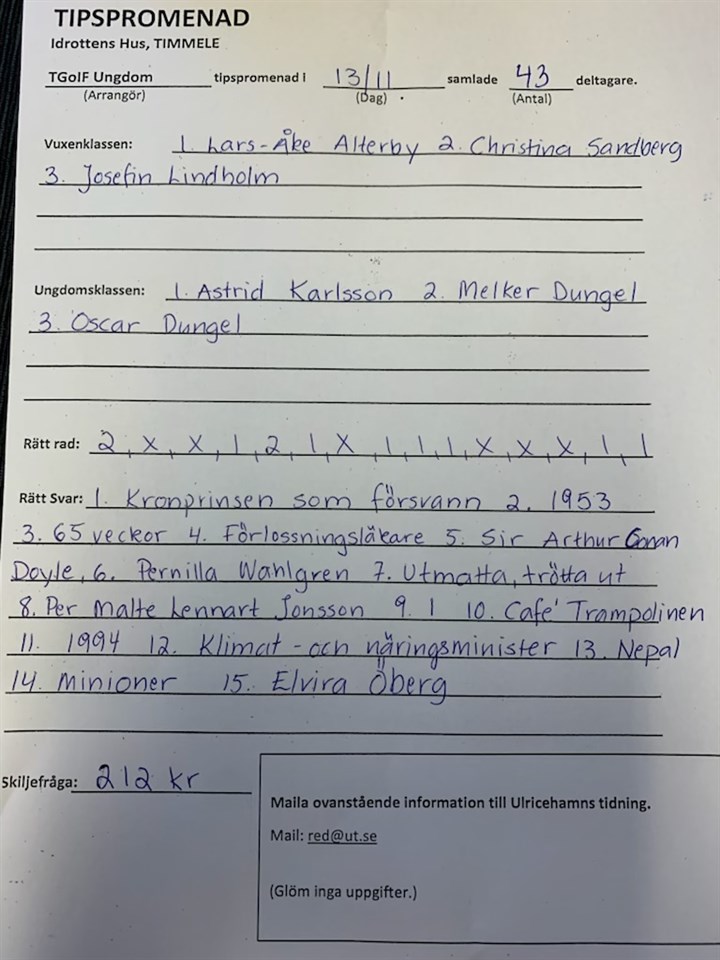 TIPSPROMENAD
Idrottens Hus, TIMMELE
TGoIF Ungdom tipspromenad i 13/11 samlade 43 deltagare.
(Arrangör) (Dag) (Antal)
Vuxenklassen: 1. Lars-Åke Alterby 2. Christina Sandberg
3. Josefin Lindholm
Ungdomsklassen: 1. Astrid Karlsson 2. Melker Dungel
3. Oscar Dungel
Rätt rad: 2, X, X, 1, 2, 1, X, 1, 1, 1, X, X, X, 1, 1
Rätt Svar: 1. Kronprinsen som försvann 2. 1953
3. 65 veckor 4. Förlossningsläkare 5. Sir Arthur Conan
Doyle, 6. Pernilla Wahlgren 7. Utmatta, trötta ut
8. Per Malte Lennart Jonsson 9. 1 10. Café Trampolinen
11. 1994 12. Klimat-och näringsminister 13. Nepal
14. Minioner 15. Elvira Öberg
Skiljefråga: 212 kr
Maila ovanstående information till Ulricehamns tidning.
Mail: red@ut.se
(Glöm inga uppgifter.)